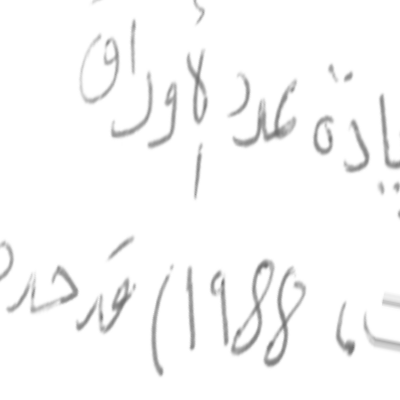 يادة عدد الأوراق
، 1988) قد